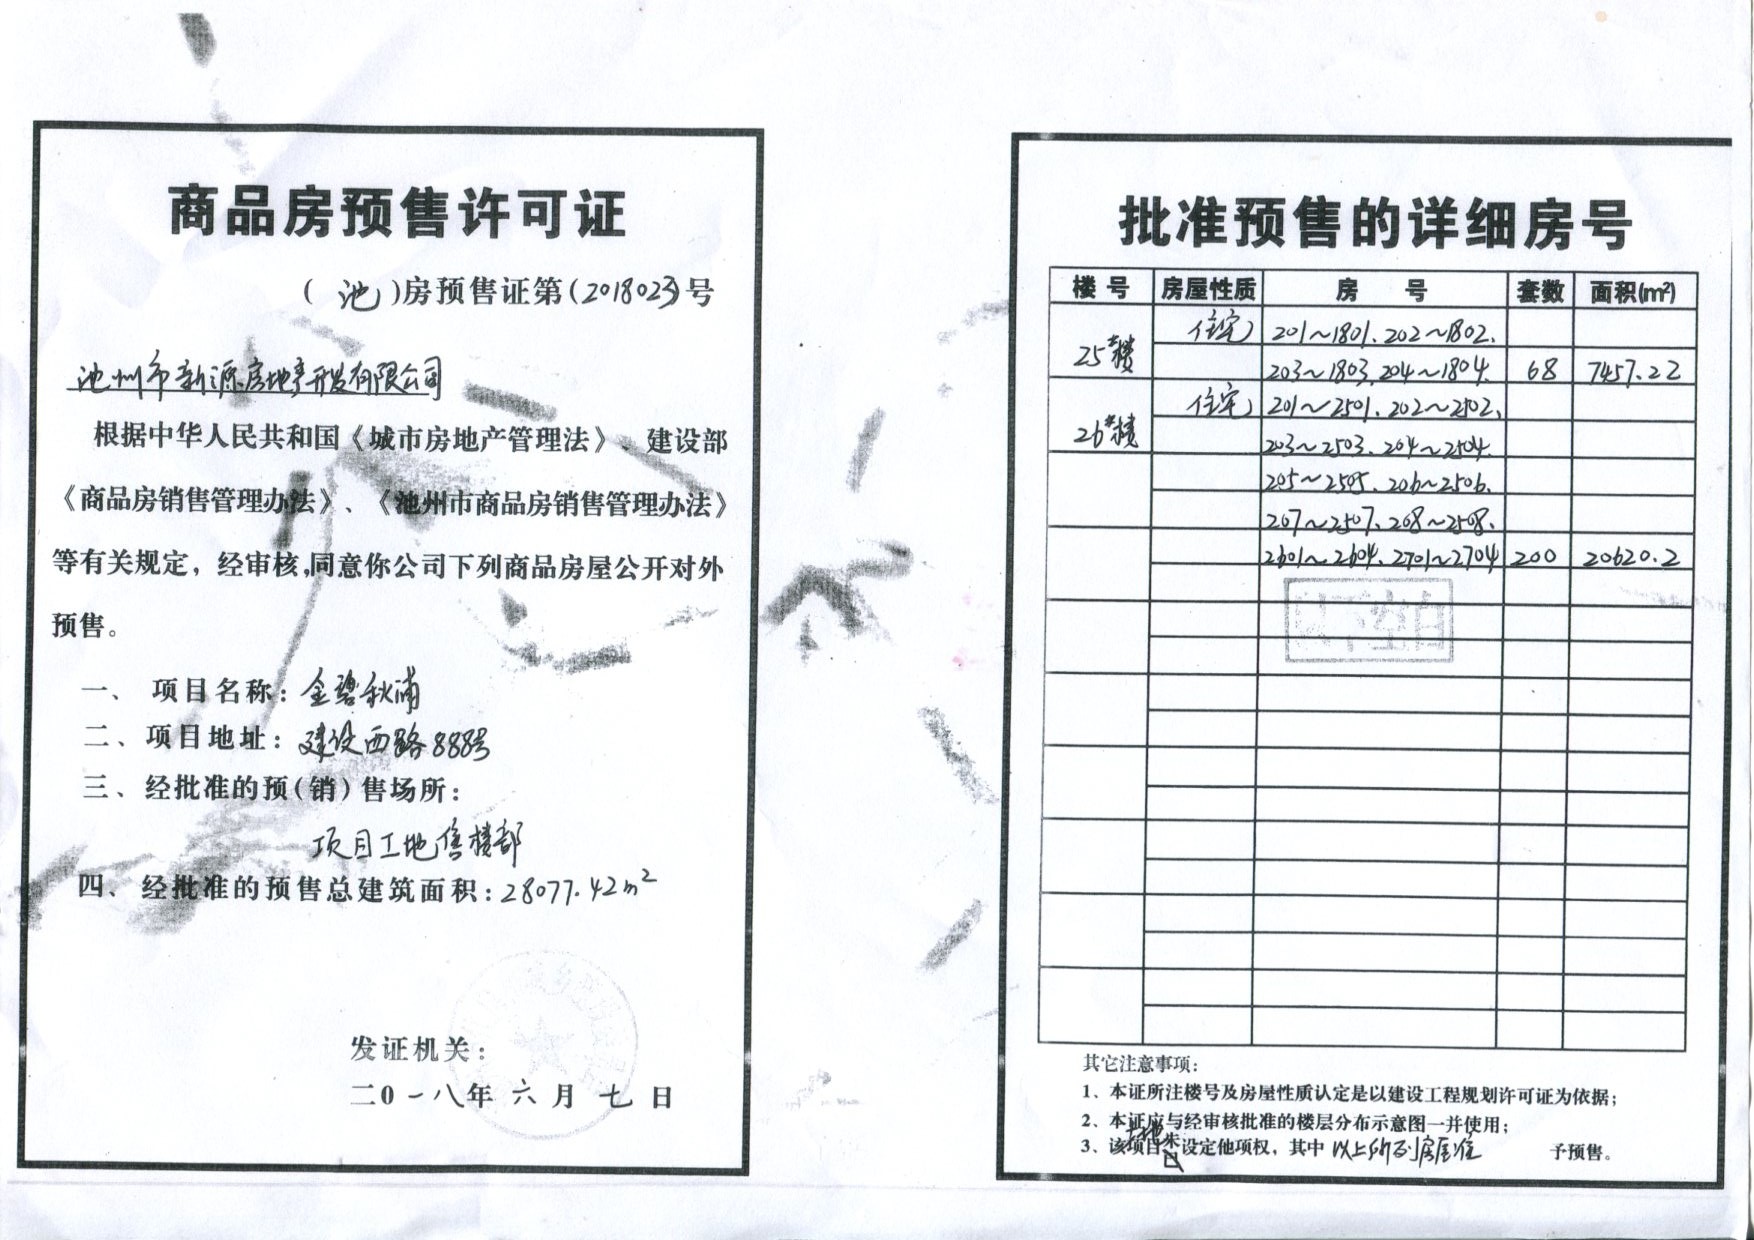 商品房预售许可证
(池)房预售证第(2018023)号
池州市新源房地产开发有限公司
根据中华人民共和国《城市房地产管理法》、建设部
《商品房销售管理办法》、《池州市商品房销售管理办法》
等有关规定，经审核，同意你公司下列商品房屋公开对外
预售。
一、项目名称：金碧秋浦
二、项目地址：建设西路888号
三、经批准的预(销)售场所：
项目工地售楼部
四、经批准的预售总建筑面积：28077.42m²
发证机关：
二0一八年六月七日
批准预售的详细房号
楼号 房屋性质 房号 套数 面积(m²)
25#楼 住宅 201～1801、202～1802、
203～1803、204～1804、 68 7457.22
26#楼 住宅 201～2501、202～2502、
203～2503、204～2504、
205～2505、206～2506、
207～2507、208～2508、
2601～2604、2701～2704 200 20620.2
其它注意事项：
1、本证所注楼号及房屋性质认定是以建设工程规划许可证为依据；
2、本证应与经审核批准的楼层分布示意图一并使用；
3、该项目土地未设定他项权，其中以上所列房屋准予预售。